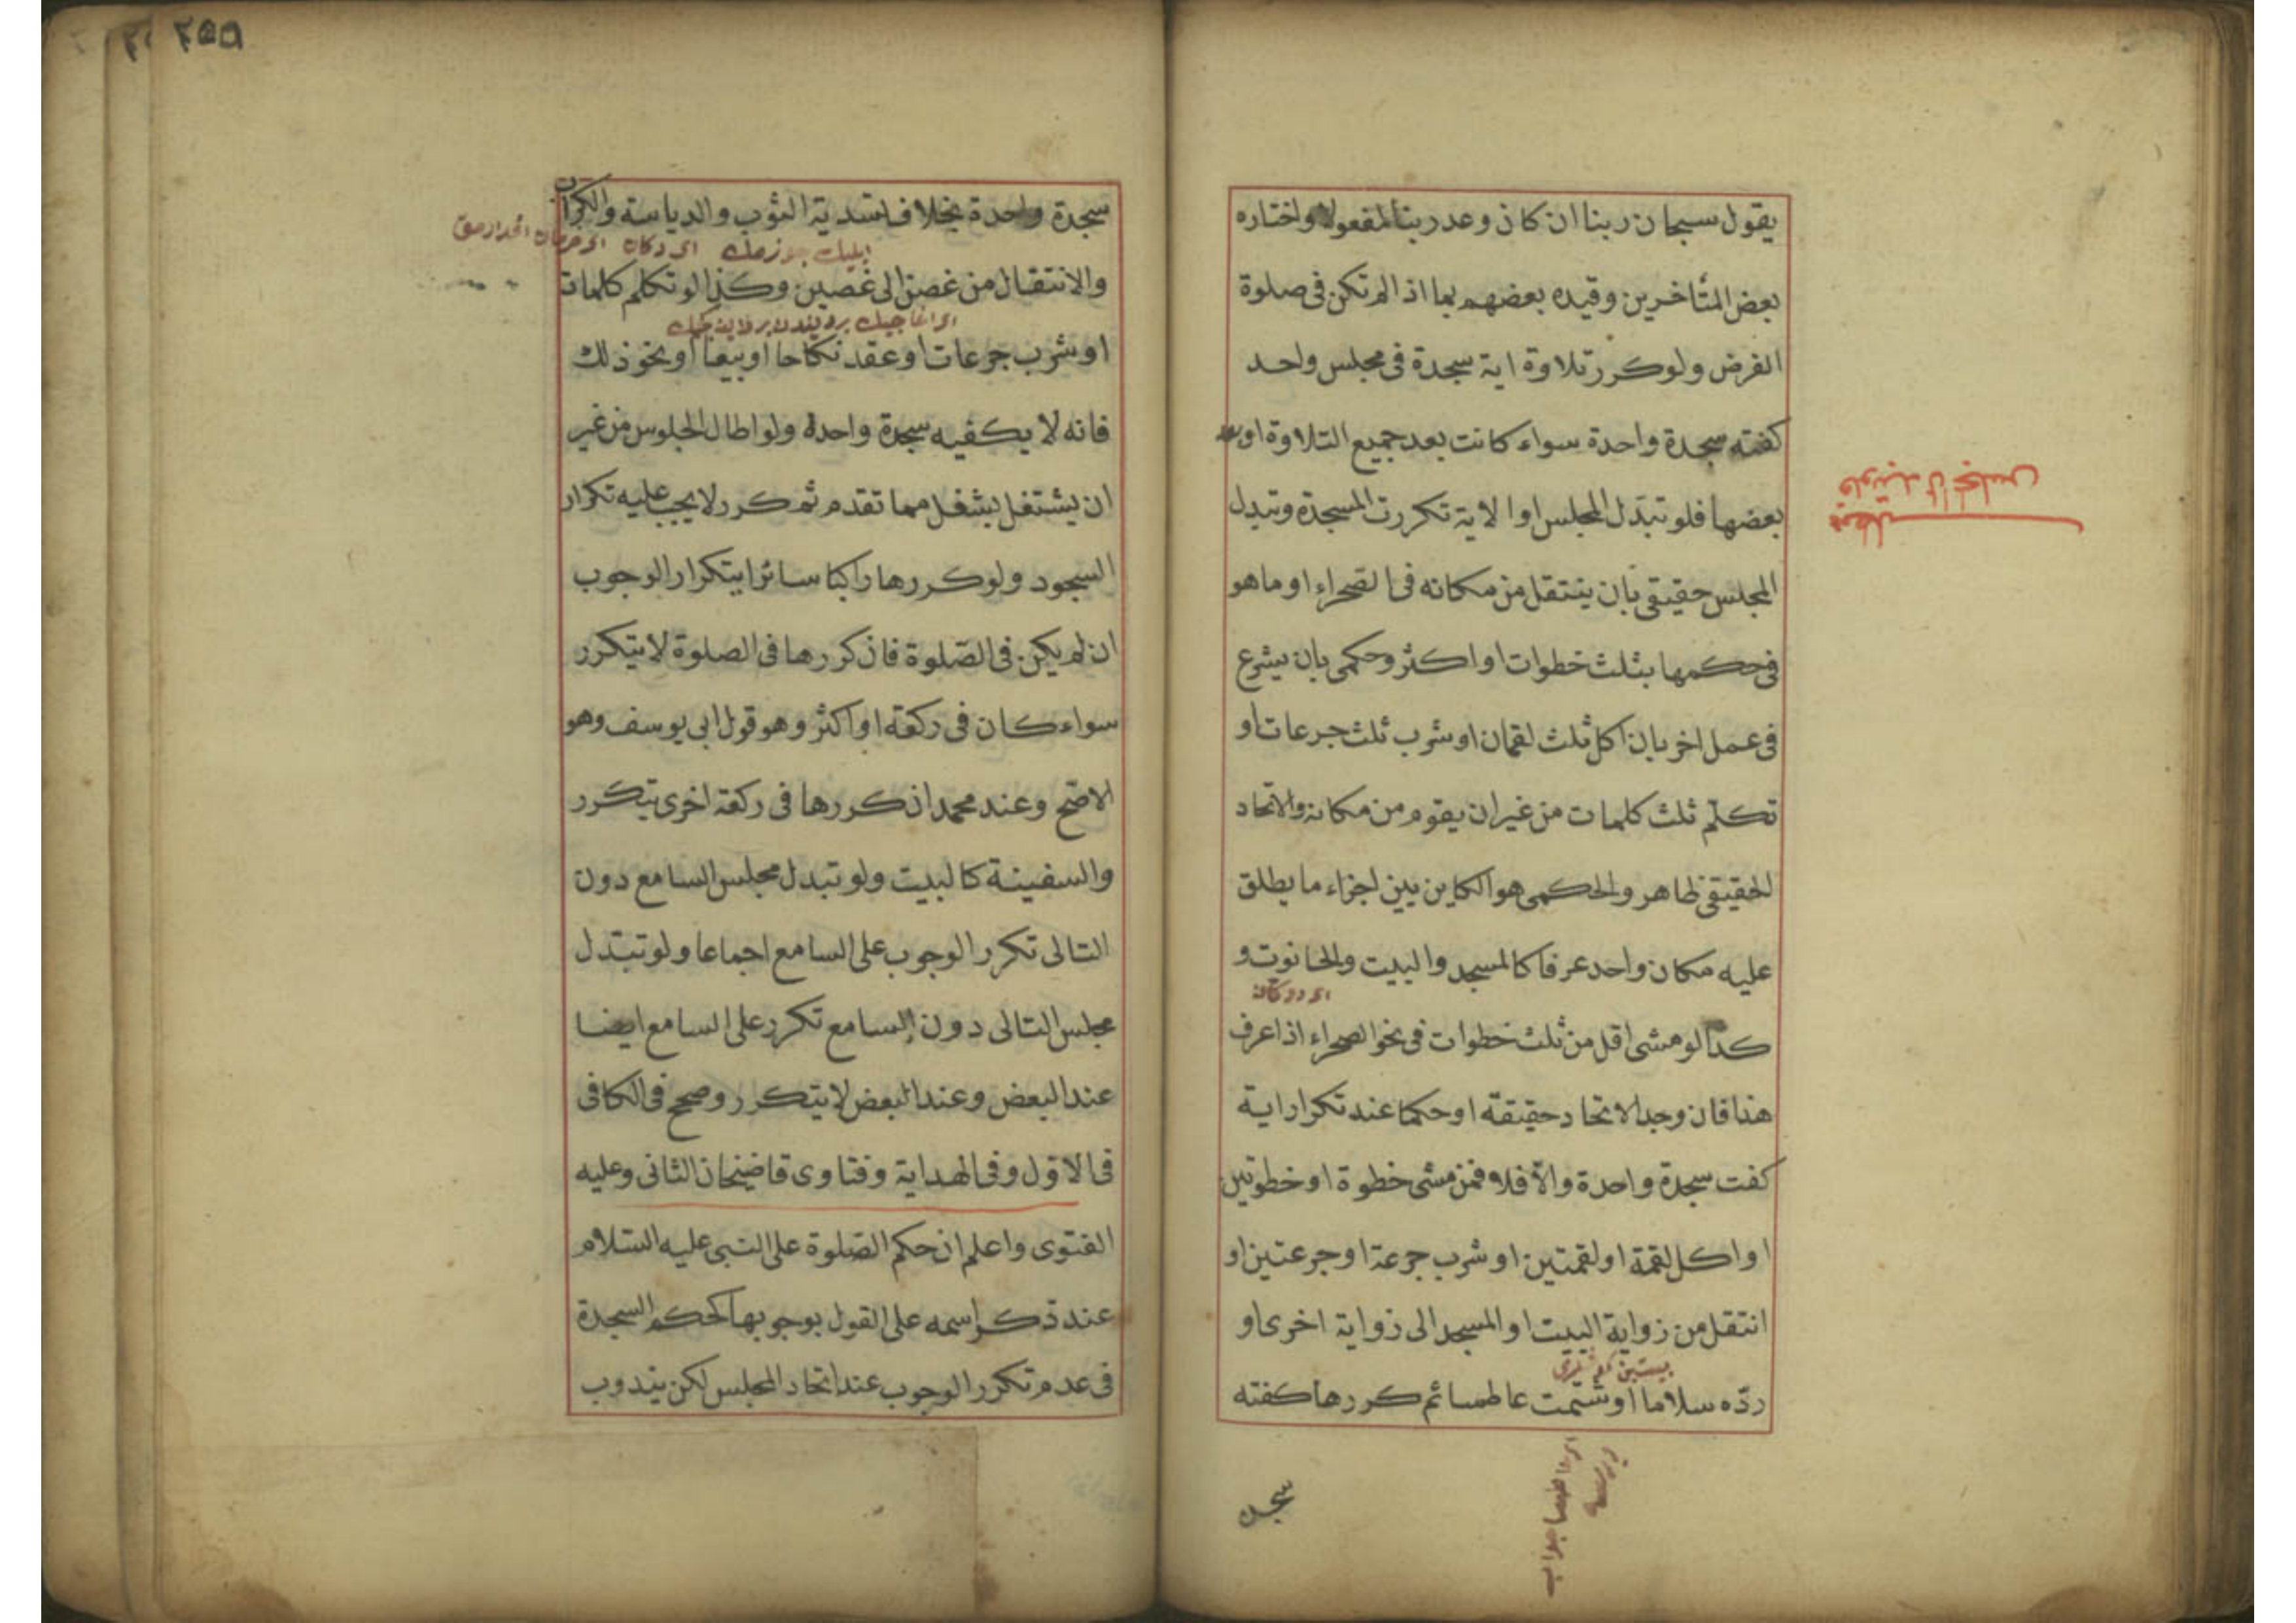 يقول سبحان ربنا ان كان وعد ربنا لمفعولا واختاره
بعض المتأخرين وقيده بعضهم بما اذا لم تكن فى صلوة
الفرض ولو كرر تلاوة اية سجدة فى مجلس واحد
كفته سجدة واحدة سواء كانت بعد جميع التلاوة او
بعضها فلو تبدّل المجلس او الاية تكررت السجدة وتبدل
المجلس حقيقى بان ينتقل من مكانه فى الصحراء او ما هو
فى حكمها بثلث خطوات او اكثر وحكمى بان يشرع
فى عمل اخر بان اكل ثلث لقمان او شرب ثلث جرعات او
تكلّم ثلث كلمات من غير ان يقوم من مكانه والاتحاد
الحقيقى ظاهر والحكمى هو الكاين بين اجزاء ما يطلق
عليه مكان واحد عرفا كالمسجد والبيت والحانوت و
كذا لو مشى اقل من ثلث خطوات فى نحو الصحراء اذا عرف
هذا فان وجد الاتحاد حقيقة او حكما عند تكرار اية
كفت سجدة واحدة والّا فلا فمن مشى خطوة او خطوتين
او اكل لقمة او لقمتين او شرب جرعة او جرعتين او
انتقل من زواية البيت او المسجد الى زواية اخرى او
ردّه سلاما او شتمت عاطسا ثم كررها كفته
سجدة
سجدة واحدة بخلاف تسدية الثوب والدياسة والكراب
والانتقال من غصن الى غصين وكذا لو تكلم كلمات
او شرب جرعات او عقد نكاحا او بيعا او نحو ذلك
فانه لا يكفيه سجدة واحدة ولو اطال الجلوس من غير
ان يشتغل بشغل مما تقدم ثم كرر لا يجب عليه تكرار
السجود ولو كررها راكبا سائرا يتكرار الوجوب
ان لم يكن فى الصّلوة فان كررها فى الصلوة لا يتكرر
سواء كان فى ركعة او اكثر وهو قول ابى يوسف وهو
الاصّح وعند محمد ان كررها فى ركعة اخرى يتكرر
والسفينة كالبيت ولو تبدل مجلس السامع دون
التالى تكرر الوجوب على السامع اجماعا ولو تبتدل
مجلس التالى دون السامع تكرر على السامع ايضا
عند البعض وعند البعض لا يتكرر وصحح فى الكافى
فى الاوّل وفى الهداية وفتاوى قاضيخان الثانى وعليه
الفتوى واعلم ان حكم الصّلوة على النبى عليه السّلام
عند ذكر اسمه على القول بوجوبها كحكم السجدة
فى عدم تكرر الوجوب عند اتحاد المجلس لكن يندوب